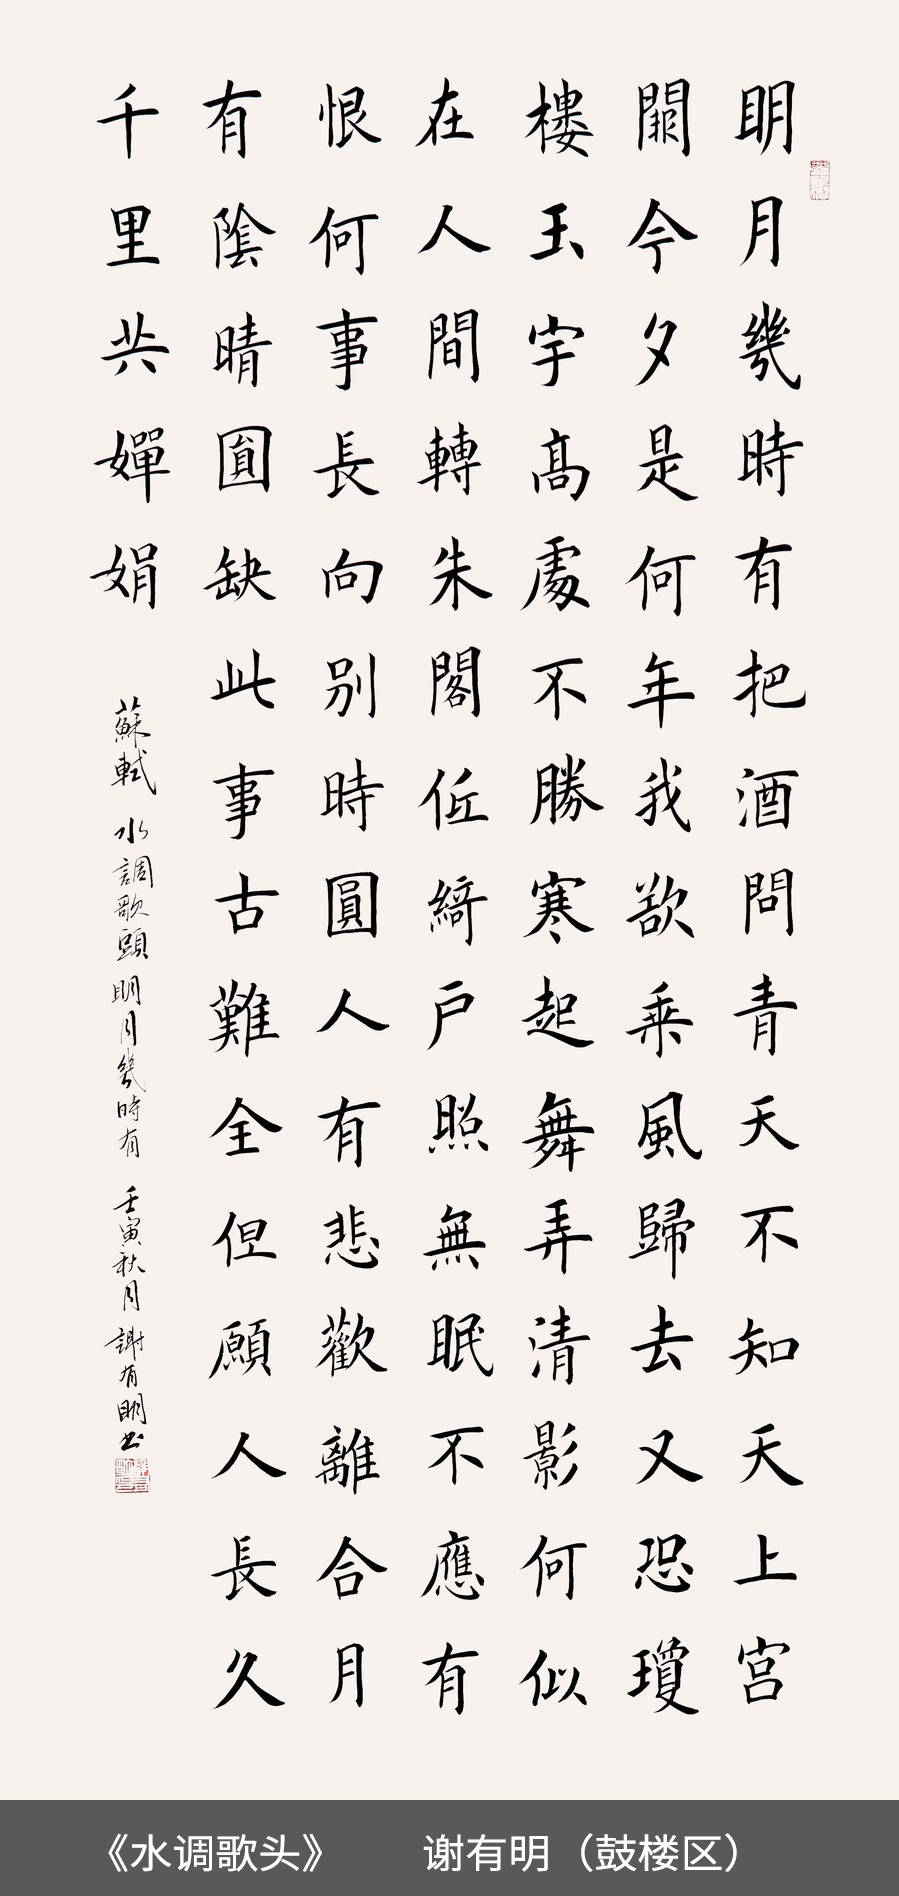 明月幾時有把酒問青天不知天上宫
闕今夕是何年我欲乘風歸去又恐瓊
樓玉宇高處不勝寒起舞弄清影何似
在人間轉朱閣低綺户照無眠不應有
恨何事長向别時圓人有悲歡離合月
有陰晴圓缺此事古難全但願人長久
千里共嬋娟
蘇軾 水調歌頭 明月幾時有 壬寅秋月 謝有明书
《水调歌头》 谢有明（鼓楼区）